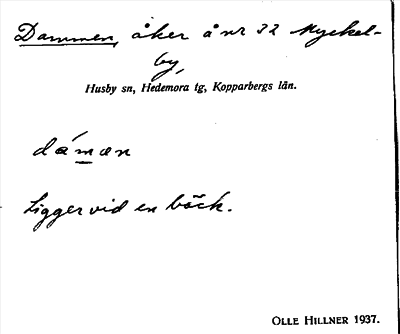 Dammen, åker å nr 32 Myckel-
by,
Husby sn, Hedemora tg, Kopparbergs län.
dáman
Ligger vid en bäck.
OLLE HILLNER 1937.